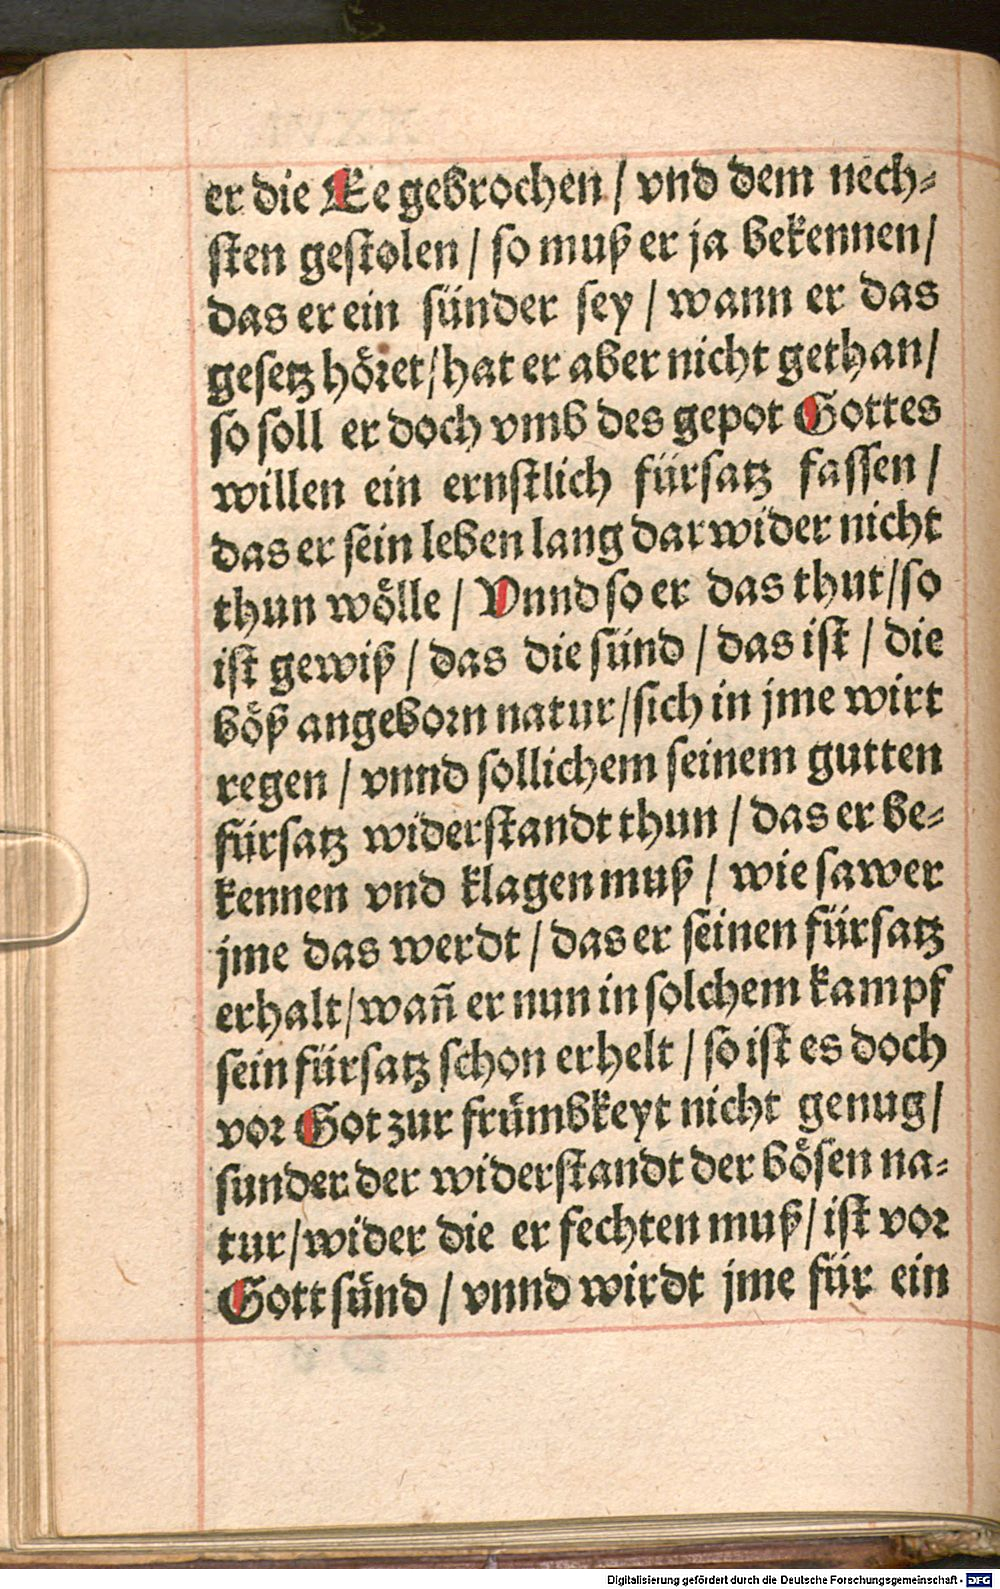 er die Ee gebrochen / vnd dem nech⸗
sten gestolen / so muß er ja bekennen /
das er ein sünder sey / wann er das
gesetz höret / hat er aber nicht gethan /
so soll er doch vmb des gepot Gottes
willen ein ernstlich fürsatz fassen /
das er sein leben lang darwider nicht
thun wölle / Vnnd so er das thut / so
ist gewiß / das die sünd / das ist / die
böß angeborn natur / sich in jme wirt
regen / vnnd sollichem seinem gutten
fürsatz widerstandt thun / das er be⸗
kennen vnd klagen muß / wie sawer
jme das werdt / das er seinen fürsatz
erhalt / wañ er nun in solchem kampf
sein fürsatz schon erhelt / so ist es doch
vor Got zur frümbkeyt nicht genug /
sunder der widerstandt der bösen na⸗
tur / wider die er fechten muß / ist vor
Gott sünd / vnnd wirdt jme für ein
Digitalisierung gefördert durch die Deutsche Forschungsgemeinschaft - DFG